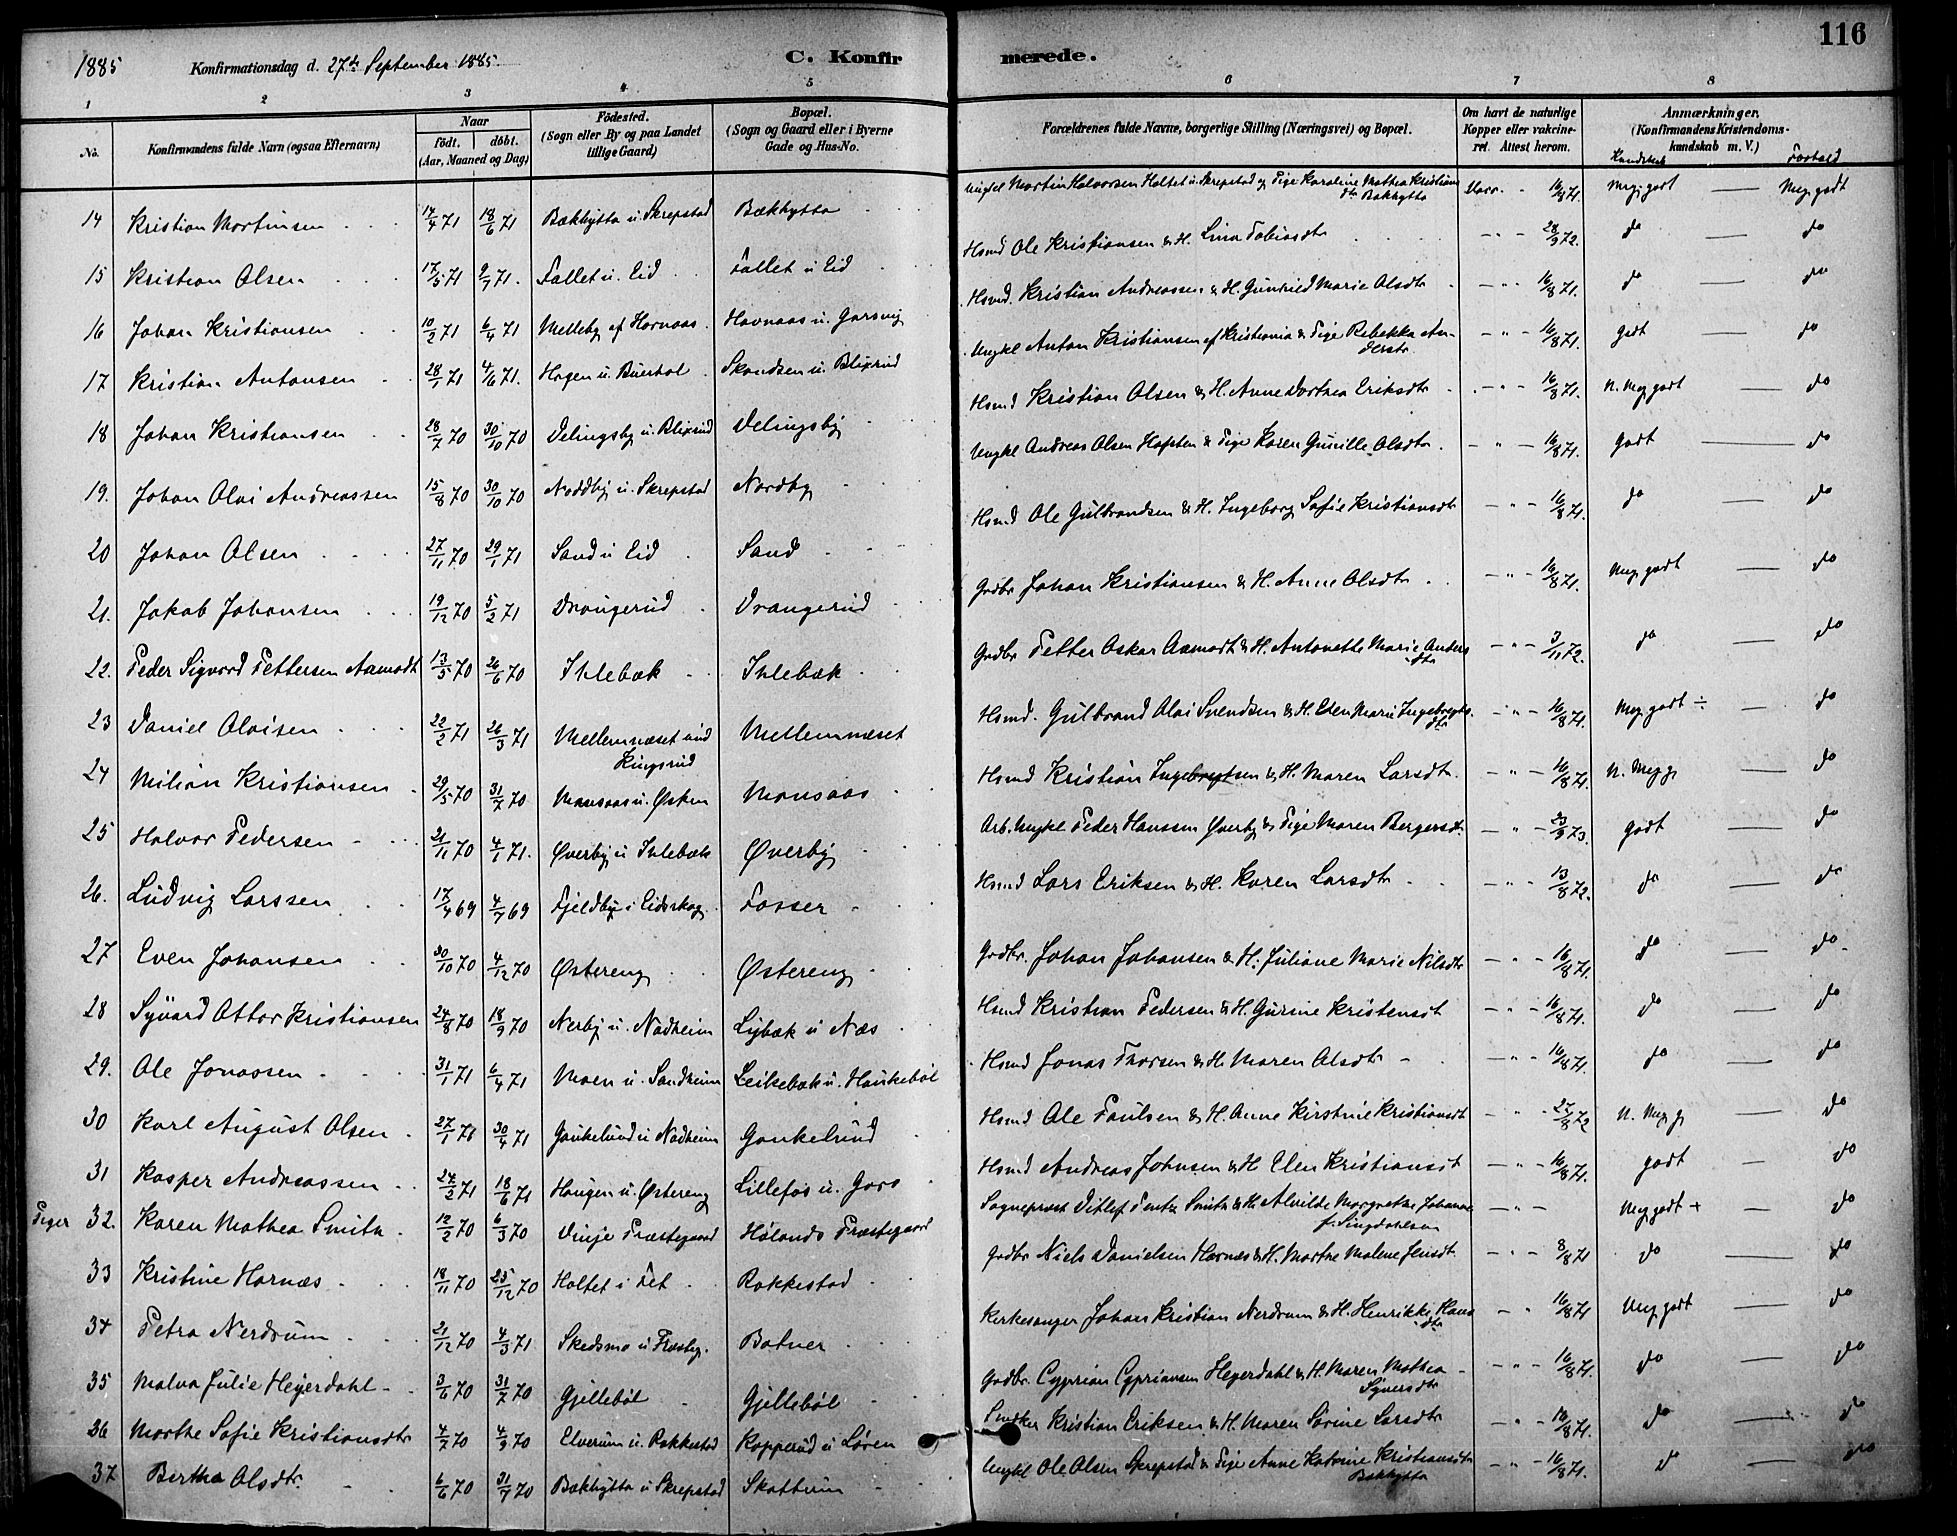 116
1885 Konfirmationsdag d. 27de September 1885. C. Konfirmerede.
1 2 3 4 5 6 7 8
No. Konfirmandens fulde Navn (ogsaa Efternavn) Naar født. døbt. (Aar, Maaned og Dag) Fødested. (Sogn eller By og paa Landet tillige Gaard) Bopæl. (Sogn og Gaard eller i Byerne Gade og Hus-No. Forældrenes fulde Navne, borgerlige Stilling (Næringsvei) og Bopæl. Om havt de naturlige Kopper eller vakcineret. Attest herom. Anmærkninger. (Konfirmandens Kristendomskundskab m. V.) Kundskab Forhold
14 Kristian Martinsen 17/4 71 18/6 71 Bækhytta u. Skrepstad Bækhytta Ungkl Martin Halvorsen Holtet u. Skrepstad og Pige Karoline Mathea Kristiansdtr Bækhytta Vacc. 16/8 71. Meg. godt — Meg. godt
15 Kristian Olsen 17/5 71 9/7 71. Fallet u. Eid Fallet u Eid Hsmd Ole Kristiansen & H. Lina Tobiasdtr - " - 28/9 72. do — do
16 Johan Kristiansen 10/2 71 6/4 71 Melleby af Hornaas Havnaas u. Garsvig Hsmd. Kristian Andreassen & H. Gunhild Marie Olsdtr - " - 16/8 71. do — do
17 Kristian Antonsen 28/1 71 4/6 71. Hagen u. Buerhol Skandsen u. Blixrud Ungkl Anton Kristiansen af Kristiania & Pige Rebekka Andersdtr - " - 16/8 71. godt — do
18 Johan Kristiansen 28/7 70 30/10 70 Delingsby u. Blixrud Delingsby Hsmd Kristian Olsen & H. Anne Dorthea Eriksdtr - " - 16/8 71. N. Meg godt — do
19. Johan Olai Andreassen 15/8 70 30/10 70 Nordby u. Skrepstad Nordby Ungkl Andreas Olsen Hoften & Pige Karen Gunille Olsdtr. - " - 16/8 71. godt — do
20 Johan Olsen 27/11 70 29/1 71 Sand u Eid Sand Hsmd Ole Gulbrandsen & H. Ingeborg Sofie Kristiansdtr - " - 16/8 71. do — do
21. Jakob Johansen 19/12 70 5/2 71 Drangerud Drangerud Grdbr Johan Kristiansen & H. Anne Olsdtr - " - 16/8 71. Meg. godt — do
22. Peder Sigvard Pettersen Aamodt 13/5 70 26/6 70 Ihlebæk Ihlebæk Grdbr Petter Oskar Aamodt & H. Antonette Marie Andersdtr - " - 3/11 72. do — do
23 Daniel Olaisen 22/2 71 26/3 71 Mellemnæset und Kingsrud Mellemnæset Hsmd. Gulbrand Olai Svendsen & H. Elen Marie Ingebregtsdtr - " - 16/8 71. Meg. godt ÷ — do
24 Milian Kristiansen 29/5 70 31/7 70 Mansaas u. Østen Mansaas Hsmd Kristian Ingebregtsen & H. Maren Larsdtr. - " - 16/8 71. N. Meg g. — do
25 Halvor Pedersen 21/11 70 4/1 71. Øverby u Ihlebæk Øverby Arb. Ungkl Peder Hanssen Øverby & Pige Maren Bergersdtr. - " - 23/9 73. godt — do
26. Ludvig Larssen 17/4 69 4/7 69 Fjeldby i Eidskog Fosser Hsmd Lars Eriksen & H. Karen Larsdtr - " - 13/8 72. do — do
27 Even Johansen 30/10 70 4/12 70 Østereng Østereng Grdbr. Johan Johansen & H. Juliane Marie Nilsdtr - " - 16/8 71. do — do
28 Syvard Ottar Kristiansen 24/8 70 18/9 70 Nerby u. Nadheim Lybæk u Næs Hsmd Kristian Pedersen & H. Gurine Kristensdt - " - 16/8 71. do — do
29. Ole Jonassen 31/1 71 6/4 71 Moen u. Sandheim Leikebæk u. Haukebøl Hsmd Jonas Thorsen & H. Maren Olsdtr - " - 16/8 71. do — do
30 Karl August Olsen 27/1 71 30/4 71 Gaukelund u Nadheim Gaukelund Hsmd Ole Paulsen & H. Anne Kirstine Kristiansdt - " - 27/8 72 N. Meg g. — do
31 Kasper Andreassen 24/2 71 18/6 71 Haugen u. Østereng Lillefos u. Gors Hsmd Andreas Johnsen & H Elen Kristiansdt - " - 16/8 71. godt — do
Piger 32. Karen Mathea Smith 12/2 70 6/3 70 Vinje Præstegaard Hølands Præstegaard Sogneprest Ditlef Pentz Smith & H. Alvilde Margrethe Johanne f. Singdahlsen - " - Meg godt + — do
33 Kristine Harnæs 18/11 70 25/12 70 Holtet i Fet Rakkestad Grdbr Niels Danielsen Harnæs & H. Marthe Malene Jensdt. - " - 8/8 71 do — do
34 Petra Nerdrum 21/12 70 4/3 71 Skedsmo u Frosteg. Botner Kirkesanger Johan Kristian Nerdrum & H. Henrikke Hansdtr - " 16/8 71 Meg godt — do
35 Malva Julie Heyerdahl 3/6 70 31/7 70 Gjellebøl Gjellebøl Grdbr. Cyprian Cypriansen Heyerdahl & H. Maren Mathea Syversdtr - " - 16/8 71. do — do
36 Marthe Sofie Kristiansdtr 4/7 70 4/9 70 Elverum u. Rakkestad Kopperud u Løren Kristian Eriksen & H. Maren Sørine Larsdtr - " - 16/8 71. do — do
37 Berthe Olsdtr. 6/6 70 31/7 70 Bækhytta u Skrepstad Skattum Ungkl Ole Olsen Skrepstad & Pige Anne Katrine Kristiansdtr Bækhytta - " - 16/8 71. do — do